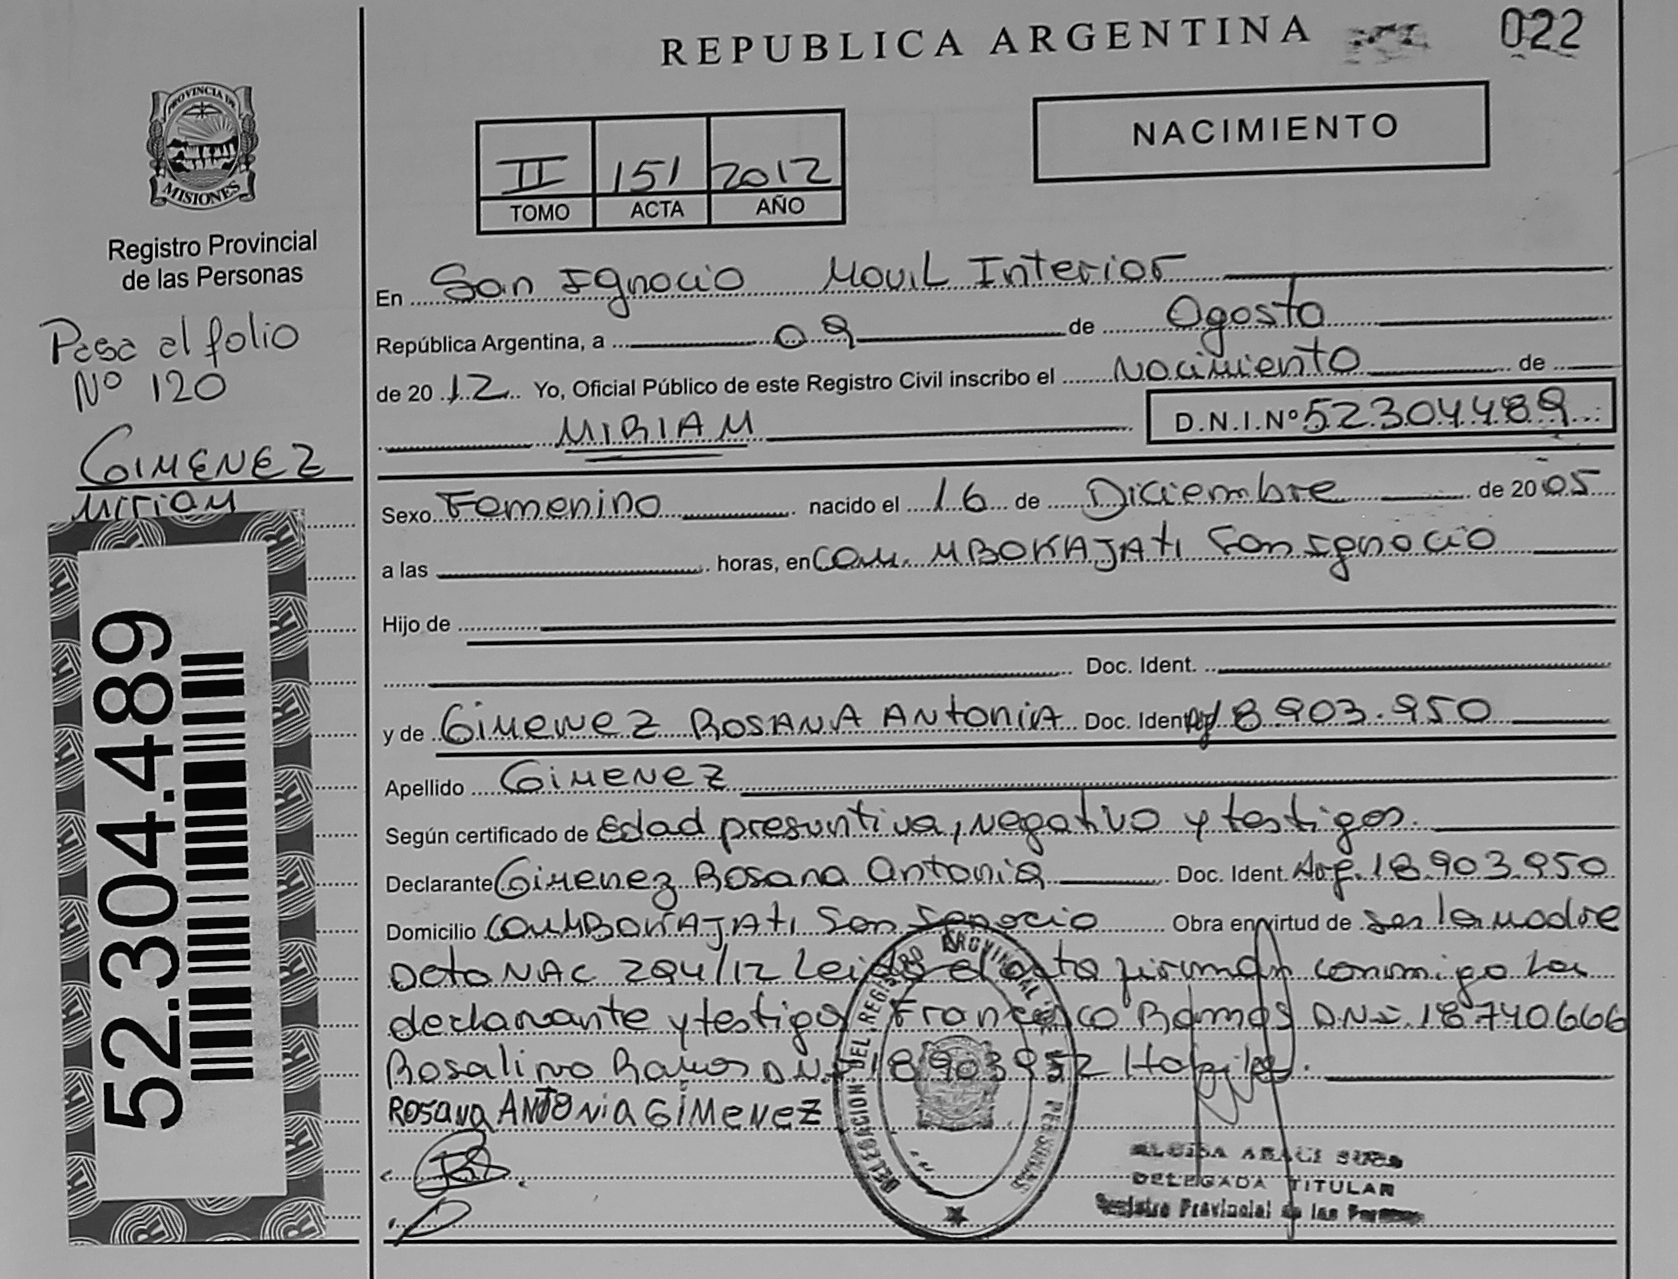 REPUBLICA ARGENTINA
022
PROVINCIA DE
MISIONES
Registro Provincial
de las Personas
Pasa al folio
Nº 120
GIMENEZ
Miriam
52.304.489
II 151 2012
TOMO ACTA AÑO
NACIMIENTO
En San Ignacio Movil Interior
República Argentina, a 09 de Agosto
de 2012 Yo, Oficial Público de este Registro Civil inscribo el Nacimiento de
MIRIAM D.N.I.Nº 52.304.489
Sexo Femenino nacido el 16 de Diciembre de 2005
a las horas, en Com. MBOKAJATI San Ignacio
Hijo de
Doc. Ident.
y de Gimenez ROSANA ANTONIA Doc. Ident. Arg 18.903.950
Apellido Gimenez
Según certificado de Edad presuntiva, negativo y testigos.
Declarante Gimenez Rosana Antonia Doc. Ident. Arg. 18.903.950
Domicilio COM MBOKAJATI San Ignacio Obra en virtud de ser la madre
Dcto NAC 294/12 Leida el acta firman conmigo la
declarante y testigo Francisco Ramos DNI. 18.740.666
Rosalino Ramos DNI 18903952 Habiles.
ROSANA ANTONIA GIMENEZ
DELEGACION DEL REGISTRO PROVINCIAL PERSONAS
DELEGADA TITULAR
Registro Provincial de las Personas